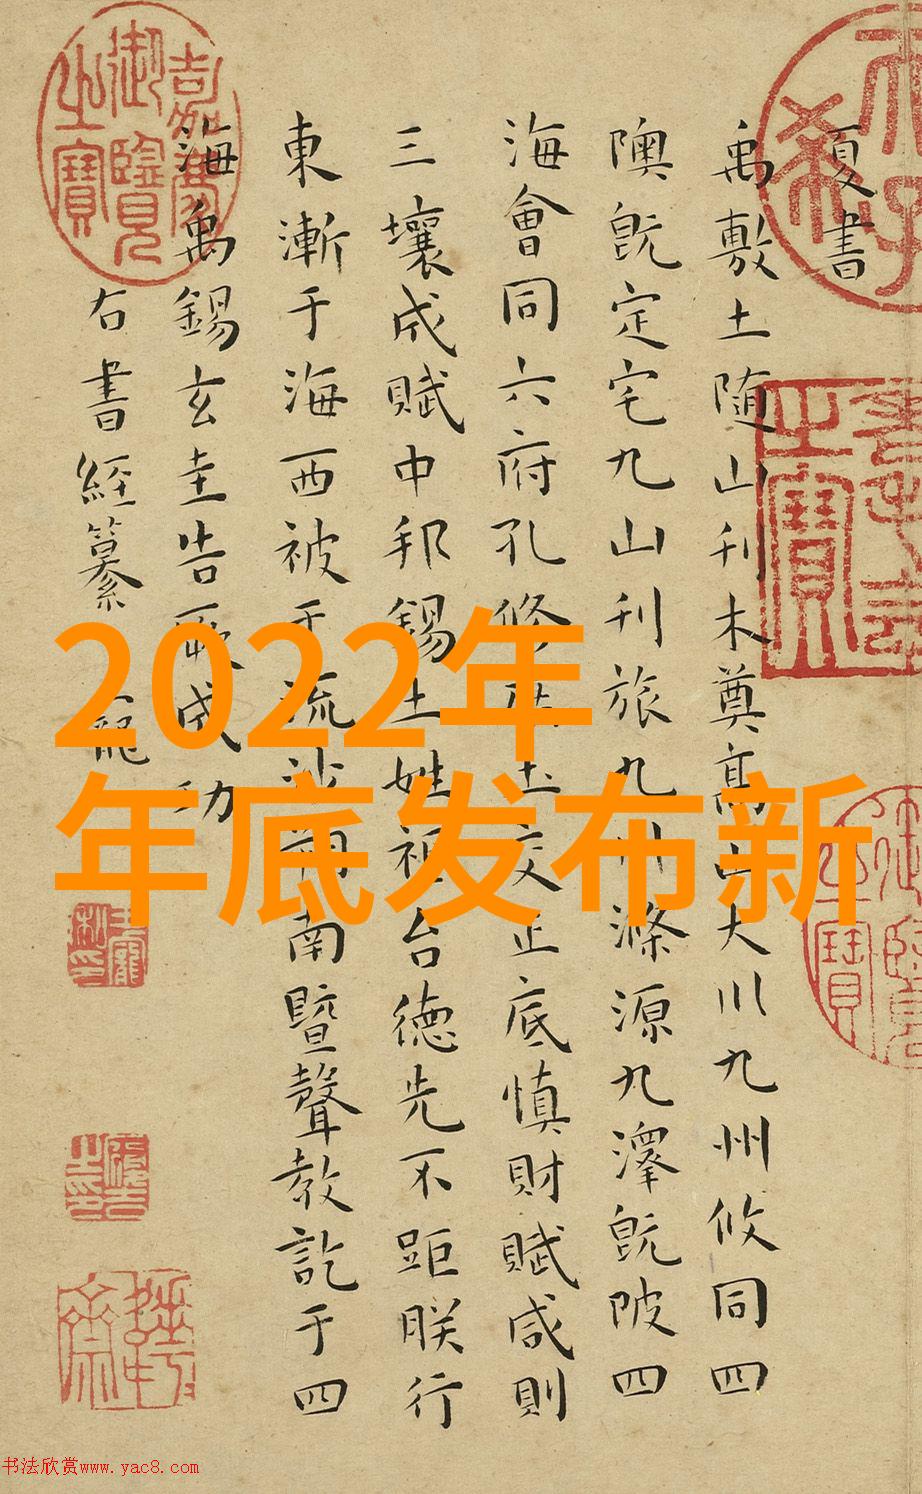 夏書
禹敷土随山刊木奠高山大川九州攸同四
隩旣定宅九山刊旅九川滌源九澤旣陂四
海會同六府孔修土交正底慎財賦咸則
三壤成賦中邦錫土姓祗台德先不距朕行
東漸于海西被于流沙南曁聲教訖于四
海禹錫玄圭告厥成功
右書經纂 寵
嘉慶御覽之寶
2022年
年底发布新
书法欣赏www.yac8.com